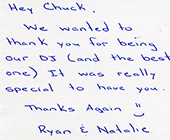 Hey Chuck,
We wanted to
thank you for being
our DJ (and the best
one) It was really
special to have you.
Thanks Again
Ryan & Natalie